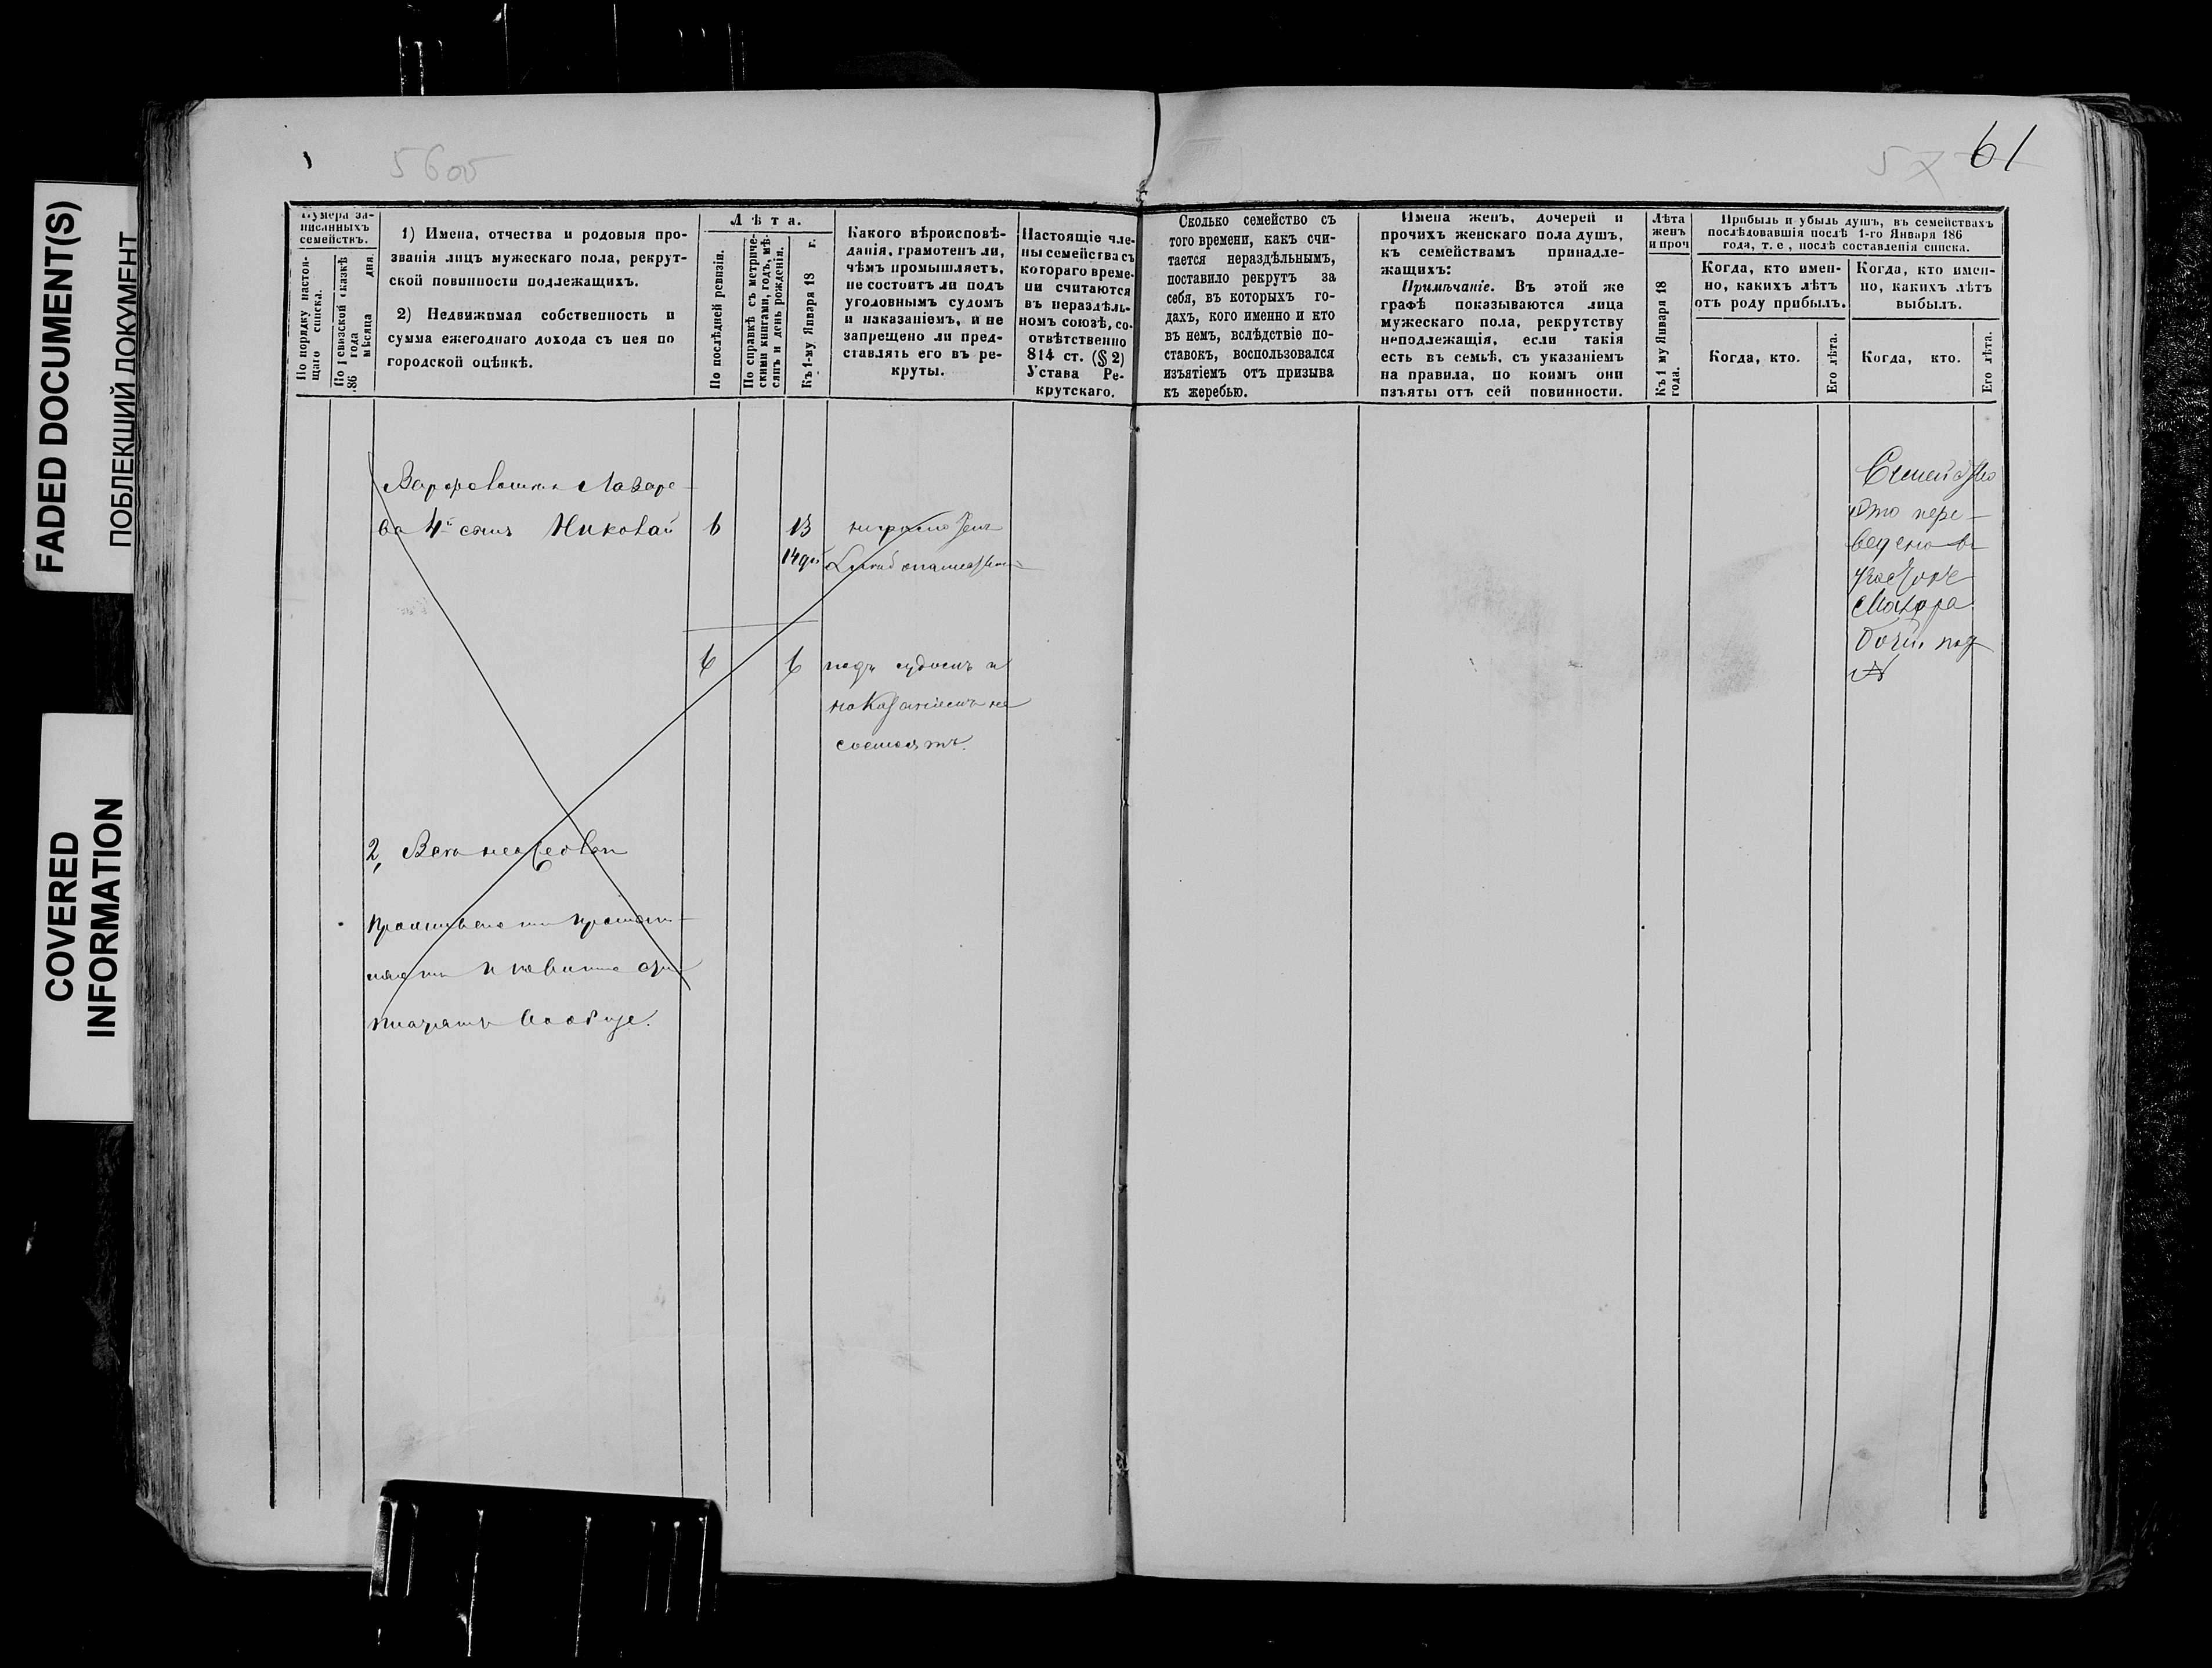 FADED DOCUMENT(S)
ПОБЛЕКШИЙ ДОКУМЕНТ
COVERED
INFORMATION
5600
61
Нумера за-
писанныхъ
семействъ.
По порядку настоя-
щаго списка.
По ревизской сказкѣ
186 года мѣсяца дня.
1) Имена, отчества и родовыя про-
званія лицъ мужескаго пола, рекрут-
ской повинности подлежащихъ.
2) Недвижимая собственность и
сумма ежегоднаго дохода съ нея по
городской оцѣнкѣ.
Лѣта.
По послѣдней ревизіи.
По справкѣ съ метриче-
скими книгами, годъ, мѣ-
сяцъ и день рожденія.
Къ 1-му Января 18 г.
Какого вѣроисповѣ-
данія, грамотенъ ли,
чѣмъ промышляетъ,
не состоитъ ли подъ
уголовнымъ судомъ
и наказаніемъ, и не
запрещено ли пред-
ставлять его въ ре-
круты.
Настоящіе чле-
ны семейства съ
котораго време-
ни считаются
въ нераздѣль-
номъ союзѣ, со-
отвѣтственно
814 ст. (§ 2)
Устава Ре-
крутскаго.
Сколько семейство съ
того времени, какъ счи-
тается нераздѣльнымъ,
поставило рекрутъ за
себя, въ которыхъ го-
дахъ, кого именно и кто
въ немъ, вслѣдствіе по-
ставокъ, воспользовался
изъятіемъ отъ призыва
къ жеребью.
Имена женъ, дочерей и
прочихъ женскаго пола душъ,
къ семействамъ принадле-
жащихъ:
Примѣчаніе. Въ этой же
графѣ показываются лица
мужескаго пола, рекрутству
неподлежащія, если такія
есть въ семьѣ, съ указаніемъ
на правила, по коимъ они
изъяты отъ сей повинности.
Лѣта
женъ
и проч
Къ 1 му Января 18
года.
Прибыль и убыль душъ, въ семействахъ
послѣдовавшія послѣ 1-го Января 186
года, т. е, послѣ составленія списка.
Когда, кто имен-
но, какихъ лѣтъ
отъ роду прибылъ.
Когда, кто имен-
но, какихъ лѣтъ
выбылъ.
Когда, кто.
Его лѣта.
Когда, кто.
Его лѣта.
Лазаре-
ва 4й сынъ Николай 6 13 неграмотенъ
6 6 подъ судомъ и
наказаніемъ не
состоятъ.
2,
и повинности
платятъ вообще.
Семейство
это пере-
ведено въ